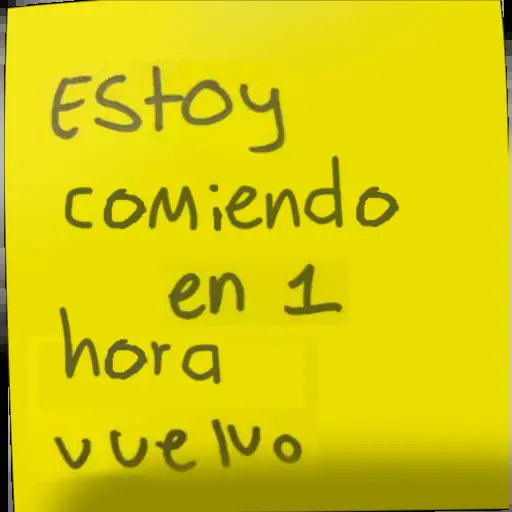 Estoy
comiendo
en 1
hora
vuelvo